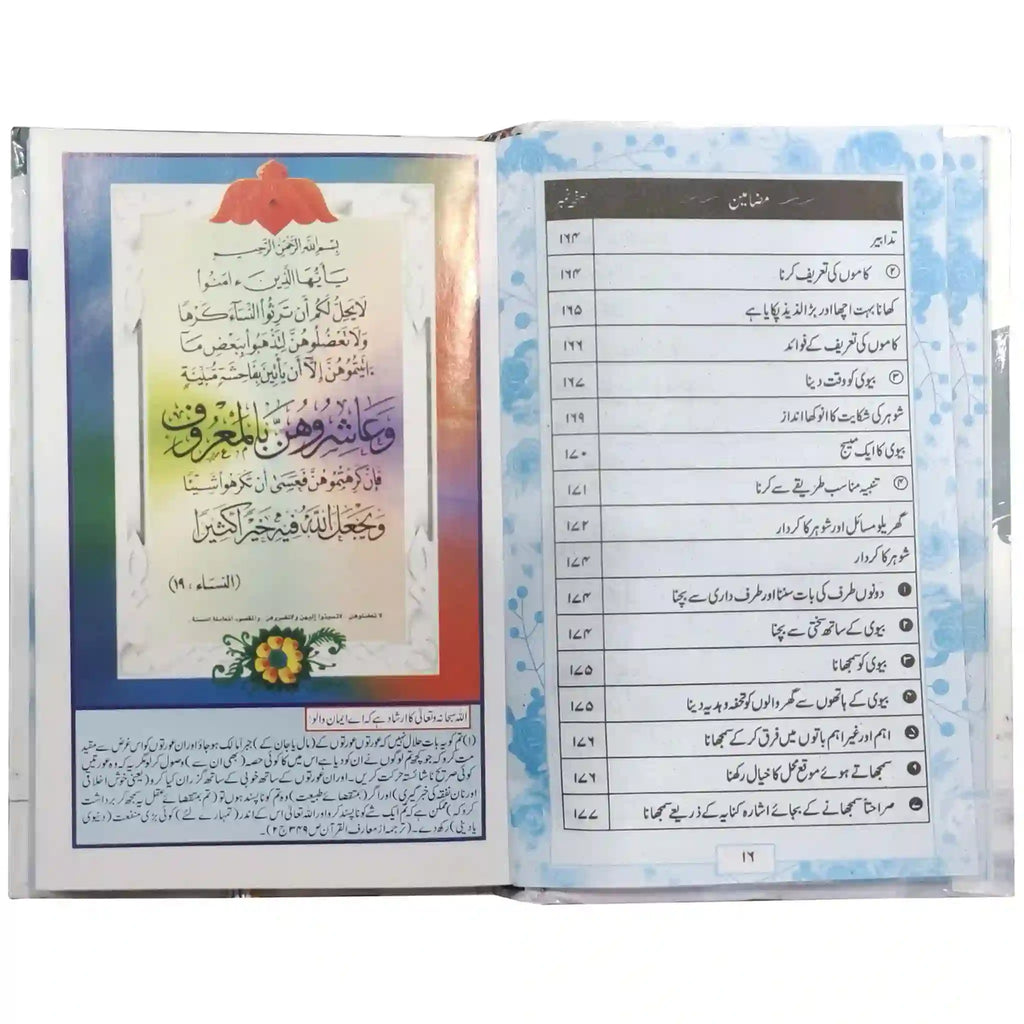 بِسْمِ اللَّهِ الرَّحْمَٰنِ الرَّحِيمِ
يَٰٓأَيُّهَا الَّذِينَ ءَامَنُوا
لَا يَحِلُّ لَكُمْ أَن تَرِثُوا النِّسَآءَ كَرْهًا
وَلَا تَعْضُلُوهُنَّ لِتَذْهَبُوا بِبَعْضِ مَآ
ءَاتَيْتُمُوهُنَّ إِلَّآ أَن يَأْتِينَ بِفَاحِشَةٍ مُّبَيِّنَةٍ
وَعَاشِرُوهُنَّ بِالْمَعْرُوفِ
فَإِن كَرِهْتُمُوهُنَّ فَعَسَىٰٓ أَن تَكْرَهُوا شَيْئًا
وَيَجْعَلَ اللَّهُ فِيهِ خَيْرًا كَثِيرًا
(النساء : ١٩)
اللہ سبحانہ وتعالیٰ کا ارشاد ہے کہ اے ایمان والو!
(۱) تم کو یہ بات حلال نہیں کہ عورتوں کے (مال یا جان کے) جبراً مالک ہو جاؤ اور ان عورتوں کو اس غرض سے مقید
مت کرو کہ جو کچھ تم لوگوں نے ان کو دیا ہے اس میں کا کوئی حصہ (بھی ان سے) وصول کر لو مگر یہ کہ وہ عورتیں
کوئی صریح ناشائستہ حرکت کریں۔ اور ان عورتوں کے ساتھ خوبی کے ساتھ گزران کیا کرو (یعنی خوش اخلاقی
اور نان نفقہ کی خبر گیری) اور اگر (بمقتضائے طبیعت) وہ تم کو ناپسند ہوں تو (تم بمقتضائے عقل یہ سمجھ کر برداشت
کرو کہ) ممکن ہے کہ تم ایک شے کو ناپسند کرو اور اللہ تعالیٰ اس کے اندر (تمہارے لئے) کوئی بڑی منفعت (دنیوی
یا دینی) رکھ دے۔ (ترجمہ از معارف القرآن ص ۳۴۹ ج ۲)۔
مضامین صفحہ نمبر
تدابیر ۱۶۴
② کاموں کی تعریف کرنا ۱۶۴
کھانا بہت اچھا اور بڑا لذیذ پکایا ہے ۱۶۵
کاموں کی تعریف کے فوائد ۱۶۶
③ بیوی کو وقت دینا ۱۶۷
شوہر کی شکایت کا انوکھا انداز ۱۶۹
بیوی کا ایک میسج ۱۷۰
④ تنبیہ مناسب طریقے سے کرنا ۱۷۱
گھریلو مسائل اور شوہر کا کردار ۱۷۲
شوہر کا کردار ۱۷۴
❶ دونوں طرف کی بات سننا اور طرف داری سے بچنا ۱۷۴
❷ بیوی کے ساتھ سختی سے بچنا ۱۷۴
❸ بیوی کو سمجھانا ۱۷۵
❹ بیوی کے ہاتھوں سے گھر والوں کو تحفہ و ہدیہ دینا ۱۷۵
❺ اہم اور غیر اہم باتوں میں فرق کر کے سمجھانا ۱۷۶
❻ سمجھاتے ہوئے موقع محل کا خیال رکھنا ۱۷۶
❼ صراحتاً سمجھانے کے بجائے اشارہ کنایہ کے ذریعے سمجھانا ۱۷۷
۱۶